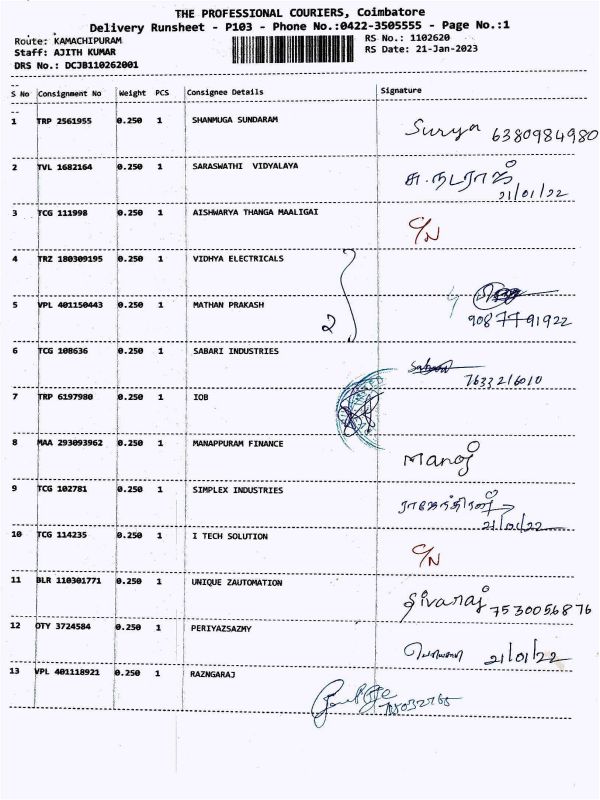 THE PROFESSIONAL COURIERS, Coimbatore
Delivery Runsheet - P103 - Phone No.:0422-3505555 - Page No.:1
Route: KAMACHIPURAM
RS No.: 1102620
Staff: AJITH KUMAR
RS Date: 21-Jan-2023
DRS No.: DCJB110262001
S No Consignment No Weight PCS Consignee Details Signature
1 TRP 2561955 0.250 1 SHANMUGA SUNDARAM Surya 6380984980
2 TVL 1682164 0.250 1 SARASWATHI VIDYALAYA சு.நடராஜ்
21/01/22
3 TCG 111998 0.250 1 AISHWARYA THANGA MAALIGAI C/N
4 TRZ 180309195 0.250 1 VIDHYA ELECTRICALS
5 VPL 401150443 0.250 1 MATHAN PRAKASH 2 9087791922
6 TCG 108636 0.250 1 SABARI INDUSTRIES
7633216010
7 TRP 6197980 0.250 1 IOB
8 MAA 293093962 0.250 1 MANAPPURAM FINANCE Manoj
9 TCG 102781 0.250 1 SIMPLEX INDUSTRIES
21/01/22
10 TCG 114235 0.250 1 I TECH SOLUTION C/N
11 BLR 110301771 0.250 1 UNIQUE ZAUTOMATION Sivaraj 7530056876
12 OTY 3724584 0.250 1 PERIYAZSAZMY 21/01/22
13 VPL 401118921 0.250 1 RAZNGARAJ